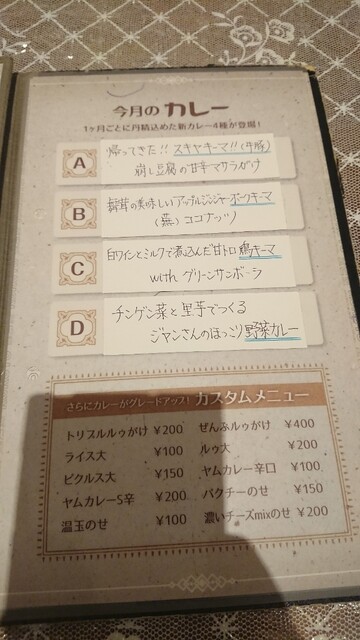 今月の カレー
1ヶ月ごとに丹精込めた新カレー4種が登場!
A
帰ってきた!! スキヤキーマ!! (牛豚)
崩し豆腐の甘辛マサラがけ
B
舞茸の美味しいアップルジンジャーポークキーマ
(蕪) ココナッツ
C
白ワインとミルクで煮込んだ甘トロ鶏キーマ
with グリーンサンボーラ
D
チンゲン菜と里芋でつくる
ジャンさんのほっこり野菜カレー
さらにカレーがグレードアップ! カスタムメニュー
トリプルルゥがけ ¥200 ぜんぶルゥがけ ¥400
ライス大 ¥100 ルゥ大 ¥200
ピクルス大 ¥150 ヤムカレー辛口 ¥100
ヤムカレーS辛 ¥200 パクチーのせ ¥150
温玉のせ ¥100 濃いチーズmixのせ ¥200